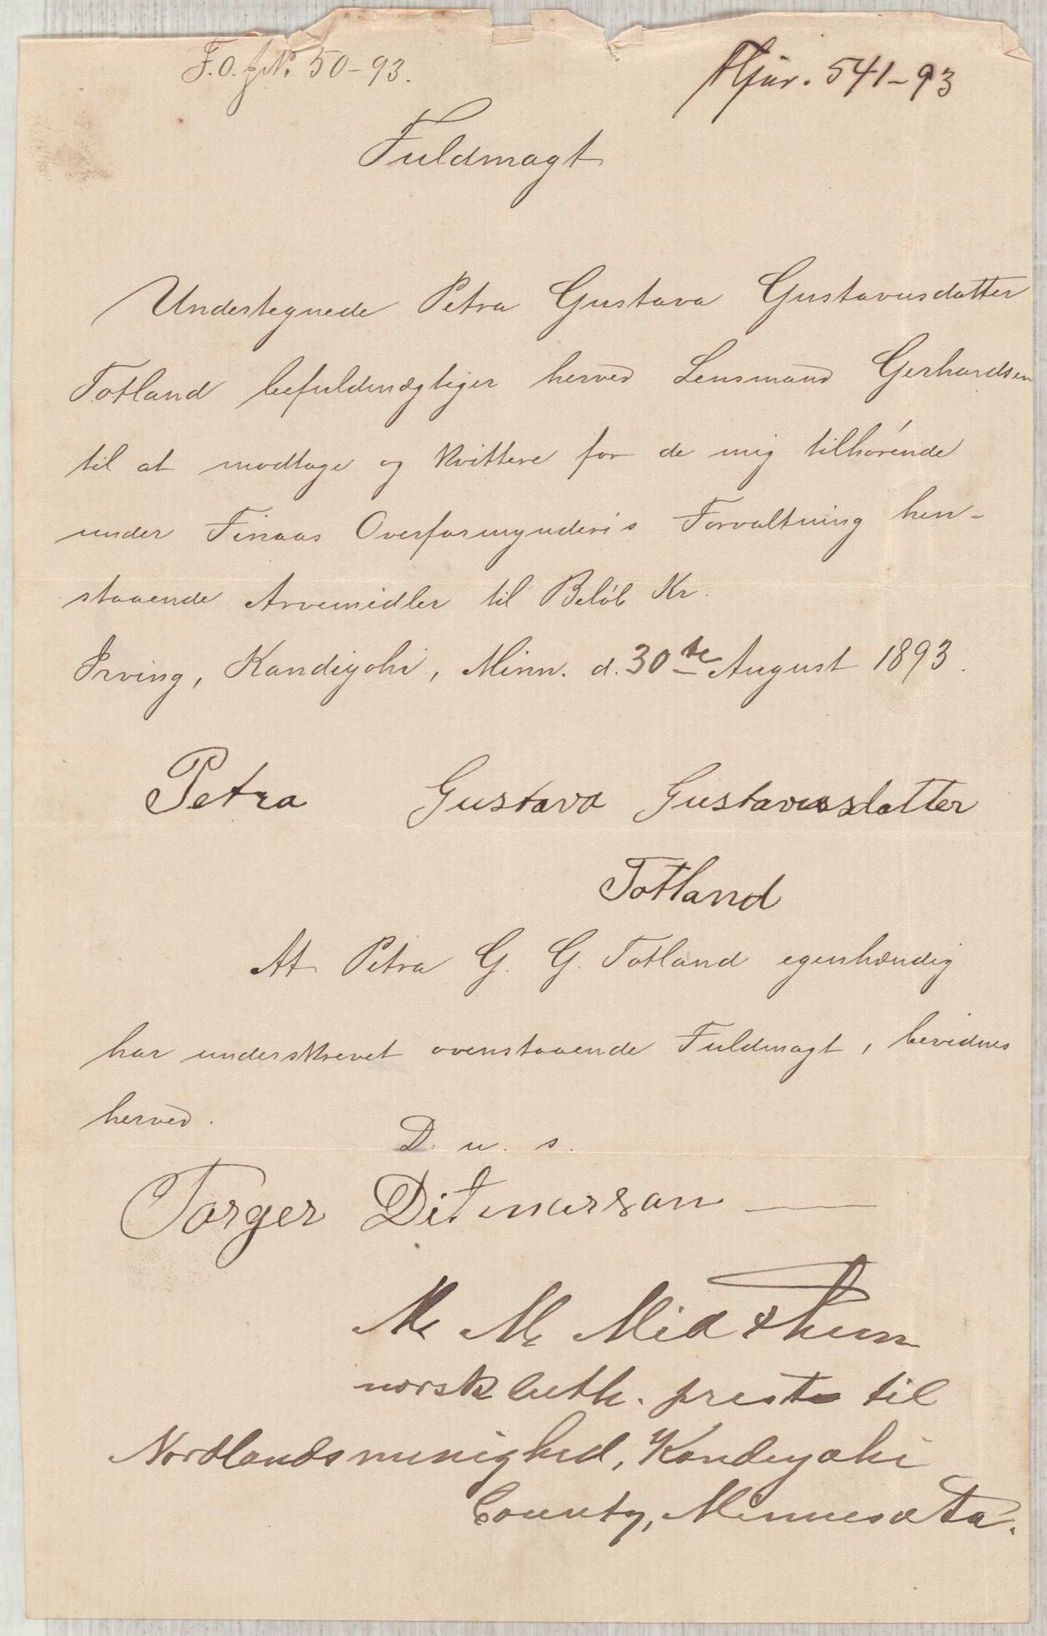 F.O. jNº 50-93.
Hjnr. 541-93
Fuldmagt
Undertegnede Petra Gustava Gustavusdatter
Totland befuldmægtiger herved Lensmand Gerhardsen
til at modtage og kvittere for de mig tilhørende
under Finaas Overformynderi's Forvaltning hen-
staaende Arvemidler til Beløb Kr.
Irving, Kandiyohi, Minn. d. 30te August 1893.
Petra Gustava Gustavusdatter
Totland
At Petra G. G. Totland egenhændig
har underskrevet ovenstaaende Fuldmagt, bevidnes
herved.
D. u. s.
Torger Ditmarson
M. M. Midthun
norsk luth. prest til
Nordlandsmenighed, Kandiyohi
County, Minnesota.